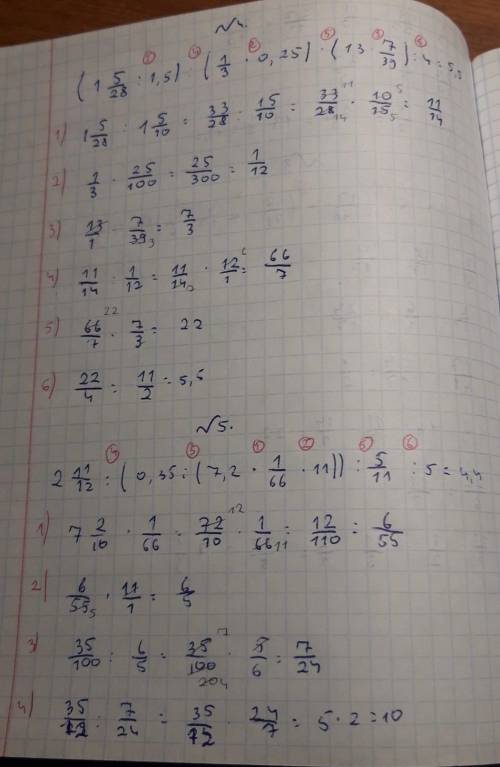 №4.
(1 5/28 : 1,5) : (1/3 · 0,25) · (13 · 7/39) : 4 = 5,5
1) 1 5/28 : 1 5/10 = 33/28 : 15/10 = 33/28 · 10/15 = 11/14
2) 1/3 · 25/100 = 25/300 = 1/12
3) 13/1 · 7/39 = 7/3
4) 11/14 : 1/12 = 11/14 · 12/1 = 66/7
5) 66/7 · 7/3 = 22
6) 22/4 = 11/2 = 5,5
№5.
2 11/12 : (0,35 : (7,2 · 1/66 · 11)) : 5/11 : 5 = 4,4
1) 7 2/10 · 1/66 = 72/10 · 1/66 = 12/110 = 6/55
2) 6/55 · 11/1 = 6/5
3) 35/100 : 6/5 = 35/100 · 5/6 = 7/24
4) 35/12 : 7/24 = 35/12 · 24/7 = 5 · 2 = 10